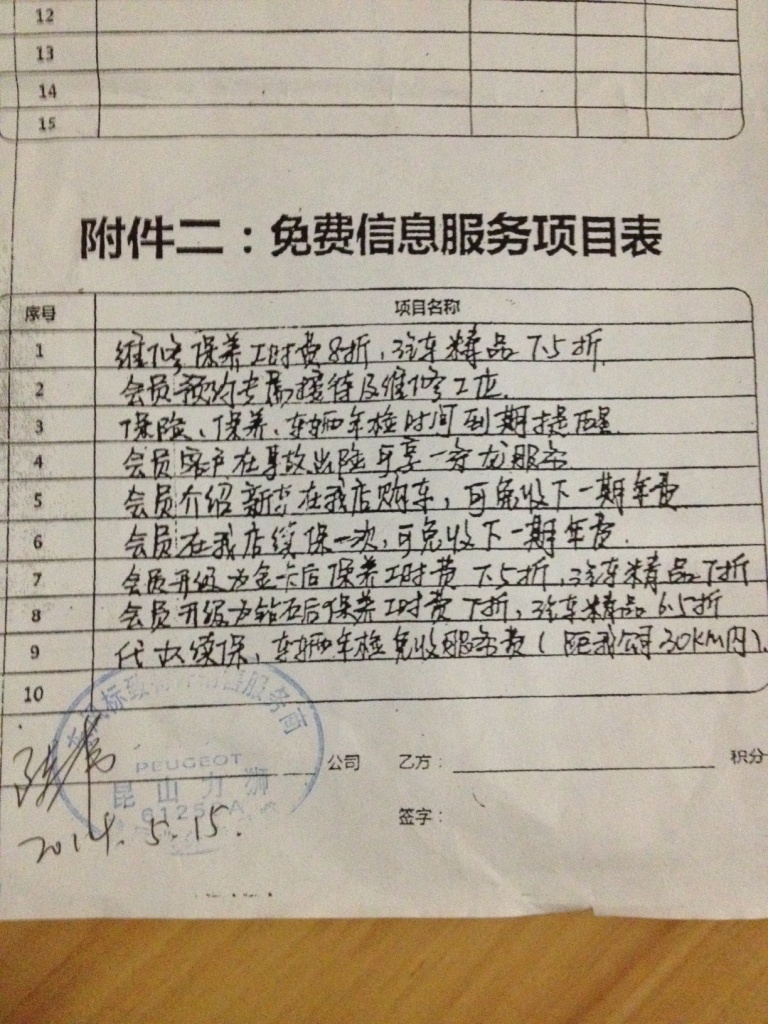 12
13
14
15
附件二：免费信息服务项目表
序号 项目名称
1 维修保养工时费8折，汽车精品7.5折
2 会员预约专属接待及维修工位.
3 保险、保养、车辆年检时间到期提醒
4 会员客户在事故出险可享一条龙服务
5 会员介绍新车在我店购车，可免收下一期年费
6 会员在我店续保一次，可免收下一期年费.
7 会员升级为金卡后保养工时费7.5折，汽车精品7折
8 会员升级为钻石后保养工时费7折，汽车精品6.5折
9 代办续保、车辆年检免收服务费（距我公司30KM内）.
10
东风标致 销售服务商
PEUGEOT
昆山力狮
公司 乙方： 积分
签字：
2014.5.15.